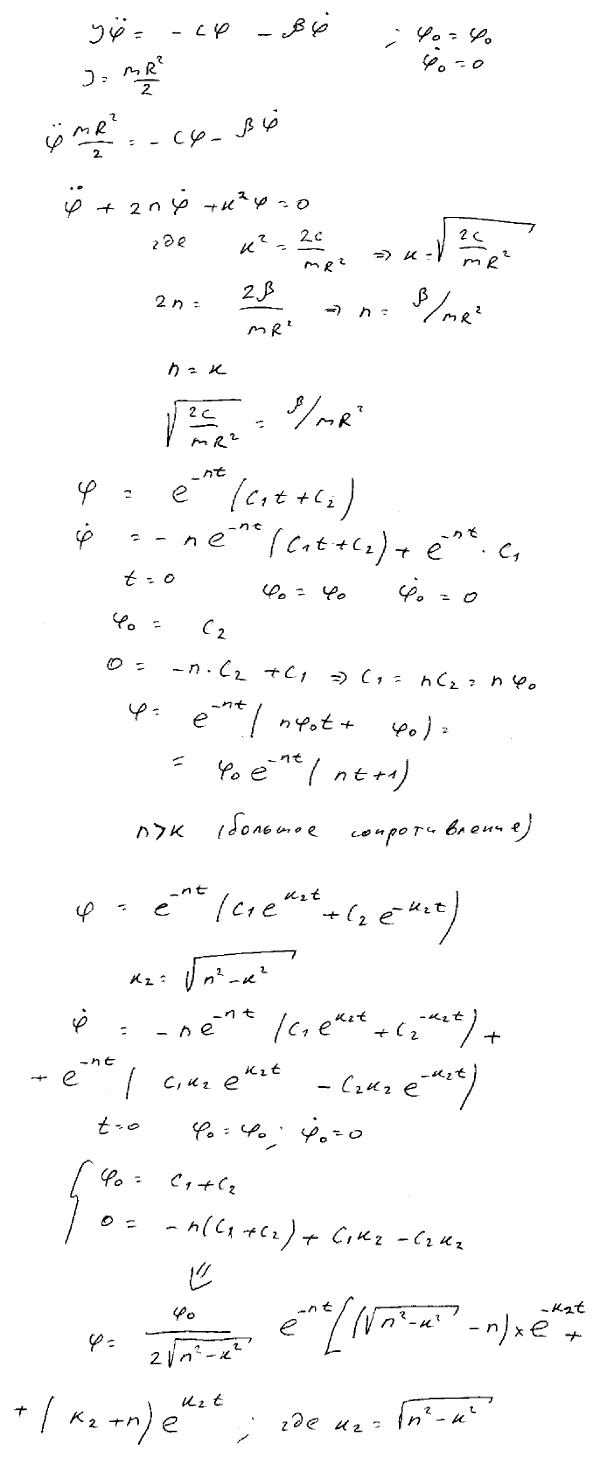 Jφ̈ = - cφ - βφ̇ ; φ₀ = φ₀
J = mR²/2 φ̇₀ = 0
φ̈ mR²/2 = - cφ - βφ̇
φ̈ + 2nφ̇ + к²φ = 0
где к² = 2c/mR² ⇒ к = √(2c/mR²)
2n = 2β/mR² ⇒ n = β/mR²
n = к
√(2c/mR²) = β/mR²
φ = e^(-nt) (C₁t + C₂)
φ̇ = - n e^(-nt) (C₁t + C₂) + e^(-nt) · C₁
t = 0 φ₀ = φ₀ φ̇₀ = 0
φ₀ = C₂
0 = -n · C₂ + C₁ ⇒ C₁ = nC₂ = nφ₀
φ = e^(-nt) ( nφ₀t + φ₀ ) =
= φ₀ e^(-nt) ( nt + 1 )
n > к (большое сопротивление)
φ = e^(-nt) (C₁ e^(к₂t) + C₂ e^(-к₂t))
к₂ = √(n² - к²)
φ̇ = - n e^(-nt) (C₁ e^(к₂t) + C₂^(-к₂t)) +
+ e^(-nt) ( C₁к₂ e^(к₂t) - C₂к₂ e^(-к₂t))
t = 0 φ₀ = φ₀ ; φ̇₀ = 0
{ φ₀ = C₁ + C₂
0 = - n(C₁ + C₂) + C₁к₂ - C₂к₂
⇓
φ = φ₀/(2√(n² - к²)) e^(-nt) [ (√(n² - к²) - n) × e^(-к₂t) +
+ ( к₂ + n) e^(к₂t) ; где к₂ = √(n² - к²)